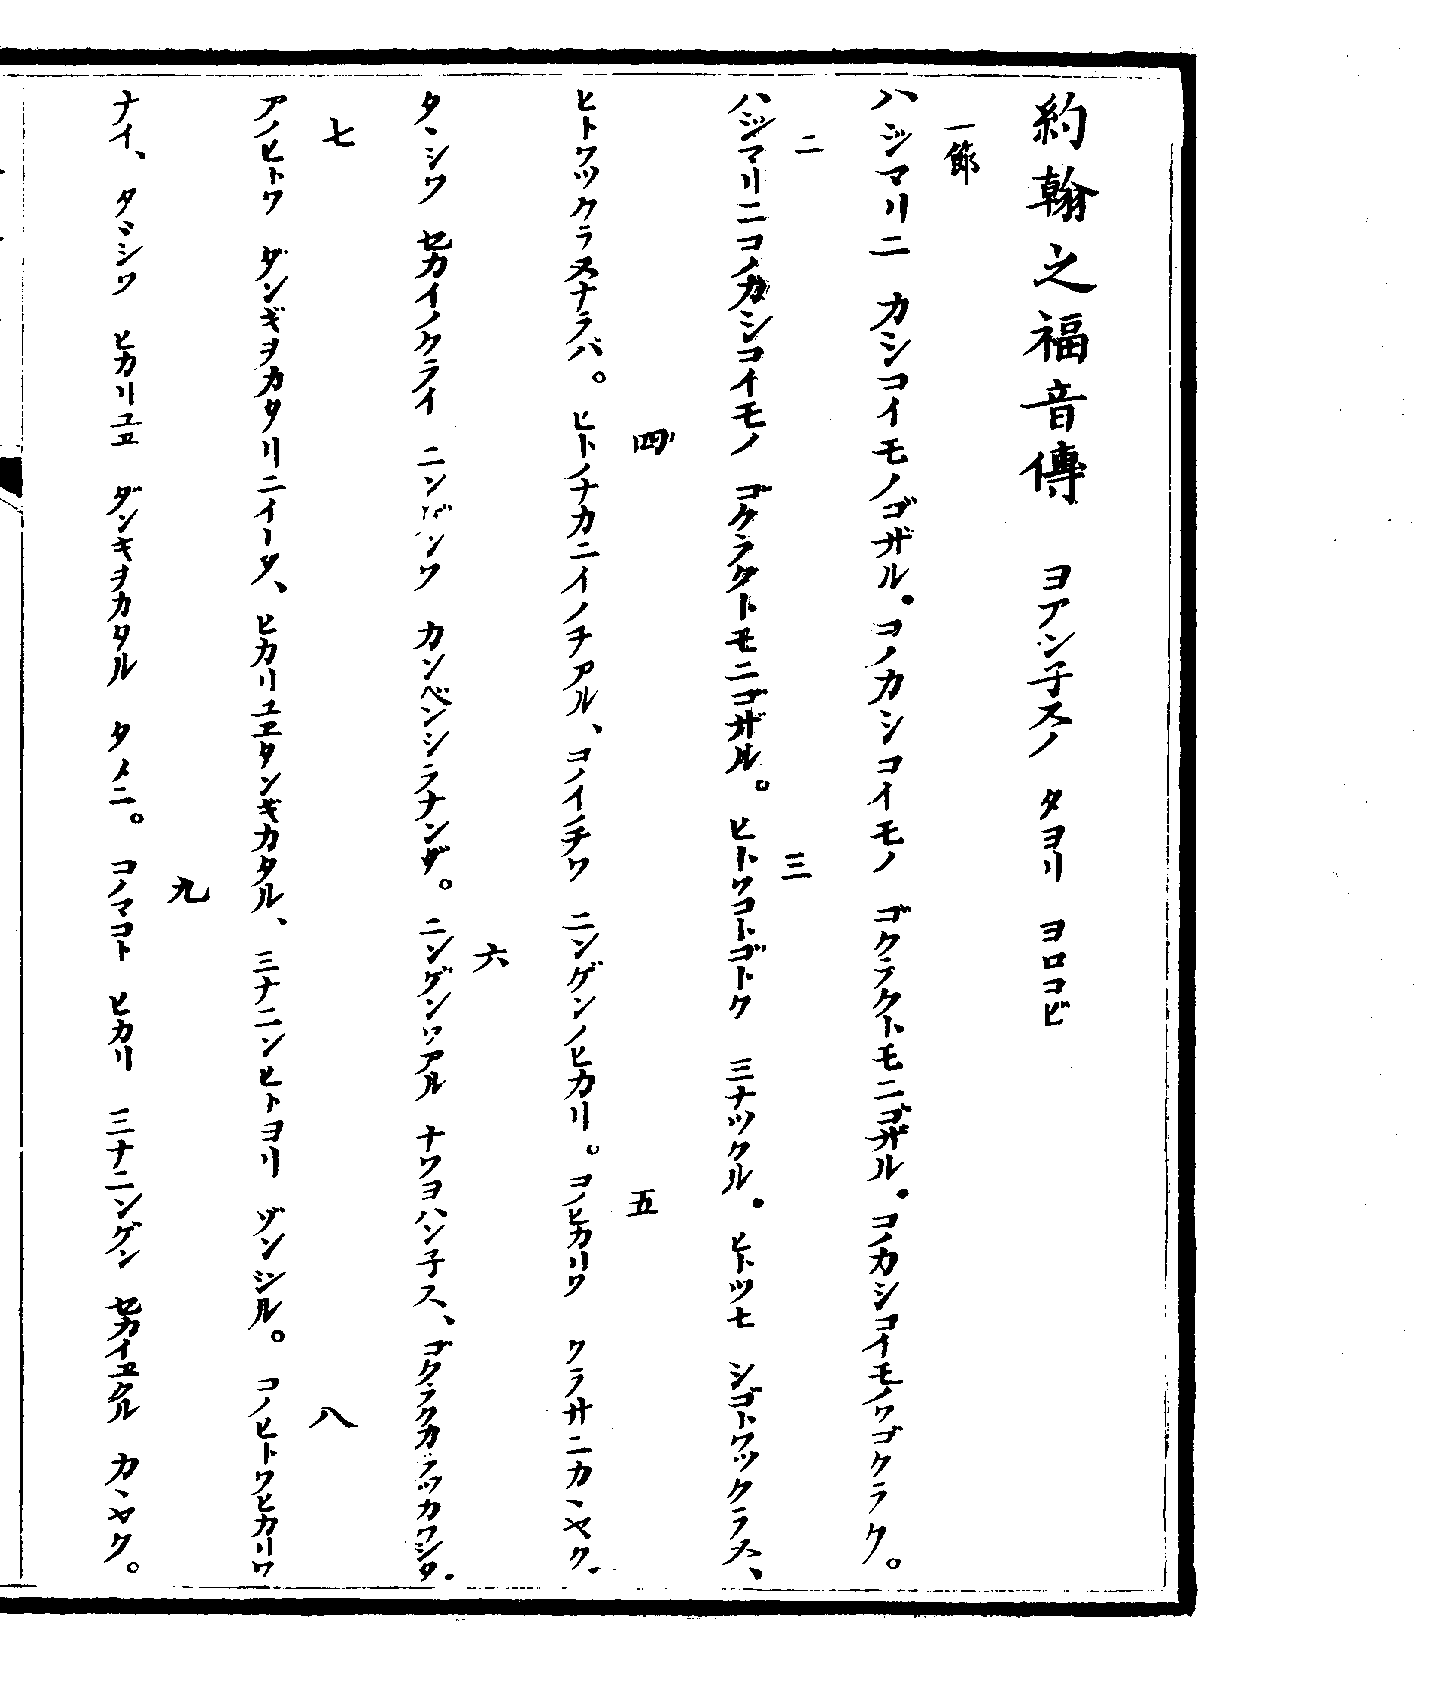 約翰之福音傳　ヨアン子スノ　タヨリ　ヨロコビ
一節
ハジマリニ　カシコイモノゴザル。コノカシコイモノ　ゴクラクトモニゴザル。コノカシコイモノワゴクラク。
二　三
ハジマリニコノカシコイモノ　ゴクラクトモニゴザル。ヒトワコトゴトク　ミナツクル。ヒトツモ　シゴトワツクラヌ、
四　五
ヒトワツクラヌナラバ。ヒトノナカニイノチアル、コノイノチワ　ニンゲンノヒカリ。コノヒカリワ　クラサニカヽヤク.
六
タヽシワ　セカイノクライ　ニンゲンワ　カンベンシラナンダ。ニンゲンワアル　ナワヨハン子ス、ゴクラクカラツカワシタ.
七　八
アノヒトワ　ダンギヲカタリニイータ、ヒカリユヱタンギカタル、ミナニンヒトヨリ　ヅンジル。コノヒトワヒカリワ
九
ナイ、タヾシワ　ヒカリユヱ　ダンキヲカタル　タメニ。コノマコト　ヒカリ　ミナニンゲン　セカイヱクル　カヽヤク。